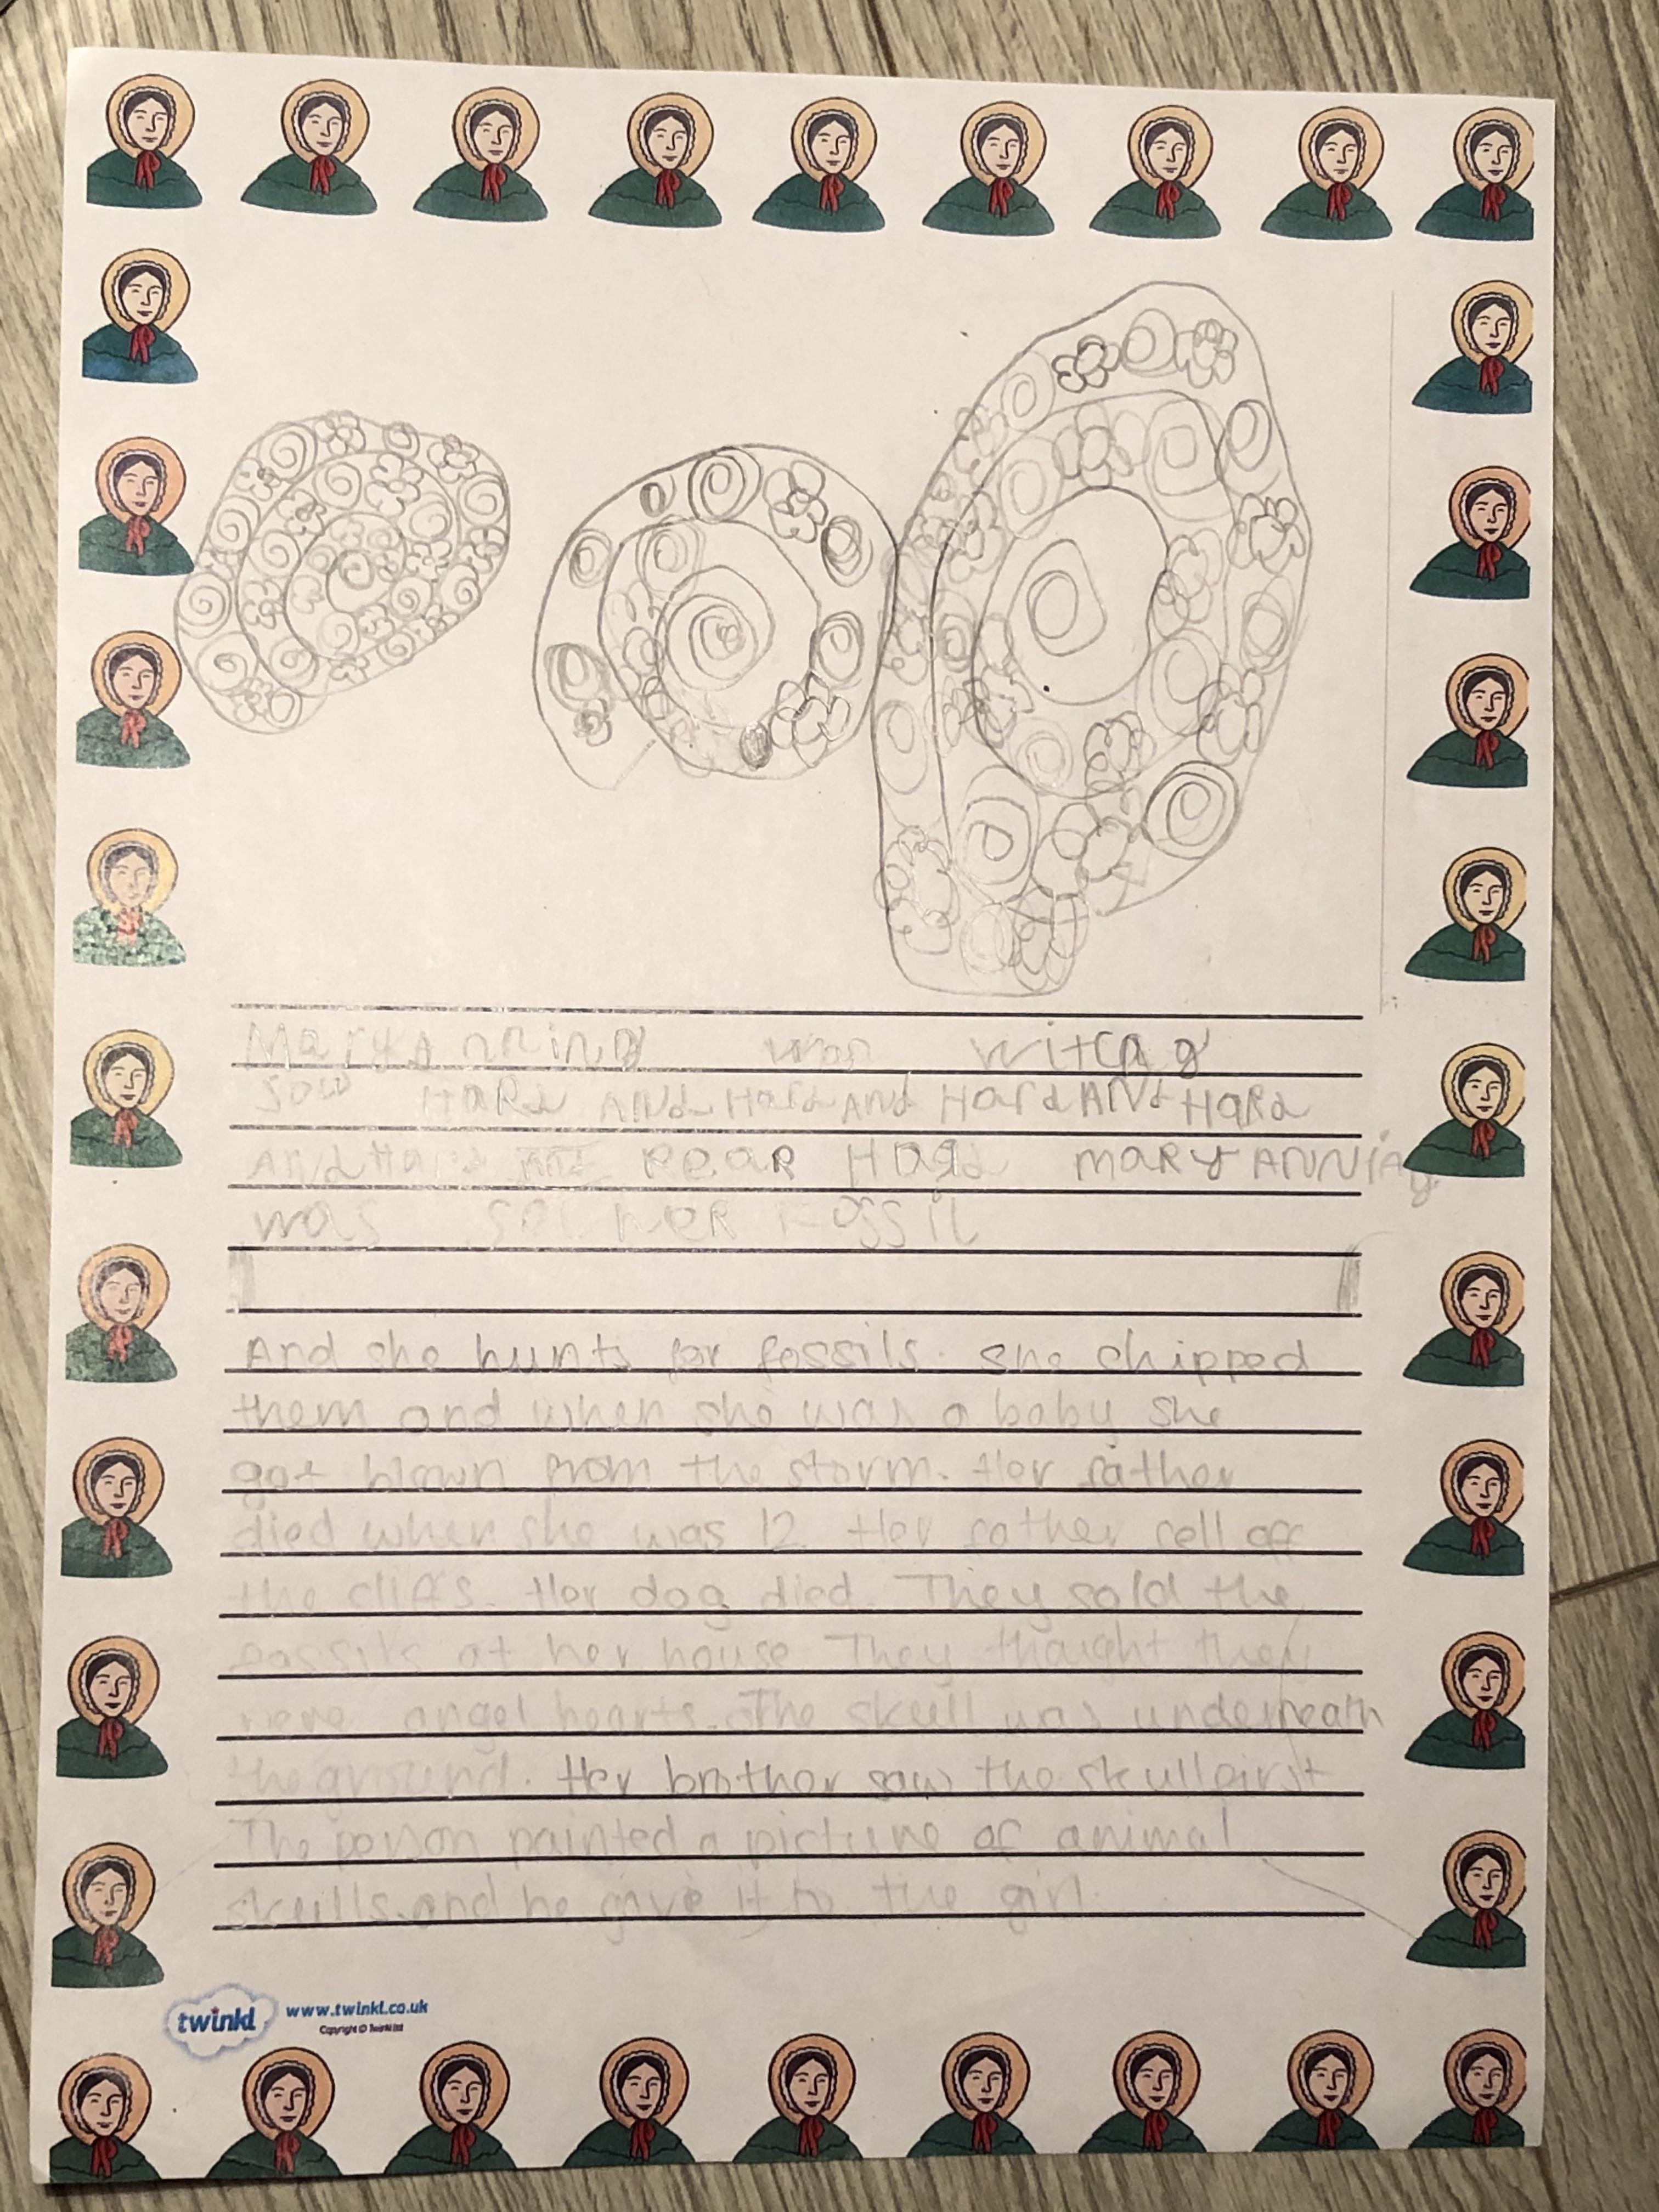 Mary Anning was witcag
sow HARd ANd Hard ANd Hard ANd HARd
And Hard PEAR HARd MARY ANNiag
was HER FOSSIL
And she hunts for fossils. She chipped
them and when she was a baby she
got blown from the storm. Her father
died when she was 12. Her father fell off
the cliffs. Her dog died. They sold the
fossils at her house They thaught they
were angel hearts. The skull was underneath
the ground. Her brother saw the skull first
The person painted a picture of animal
skulls and he gave it to the girl.
twinkl www.twinkl.co.uk
Copyright © Twinkl Ltd